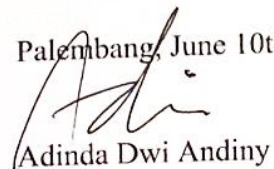 Palembang, June 10t
Adinda Dwi Andiny